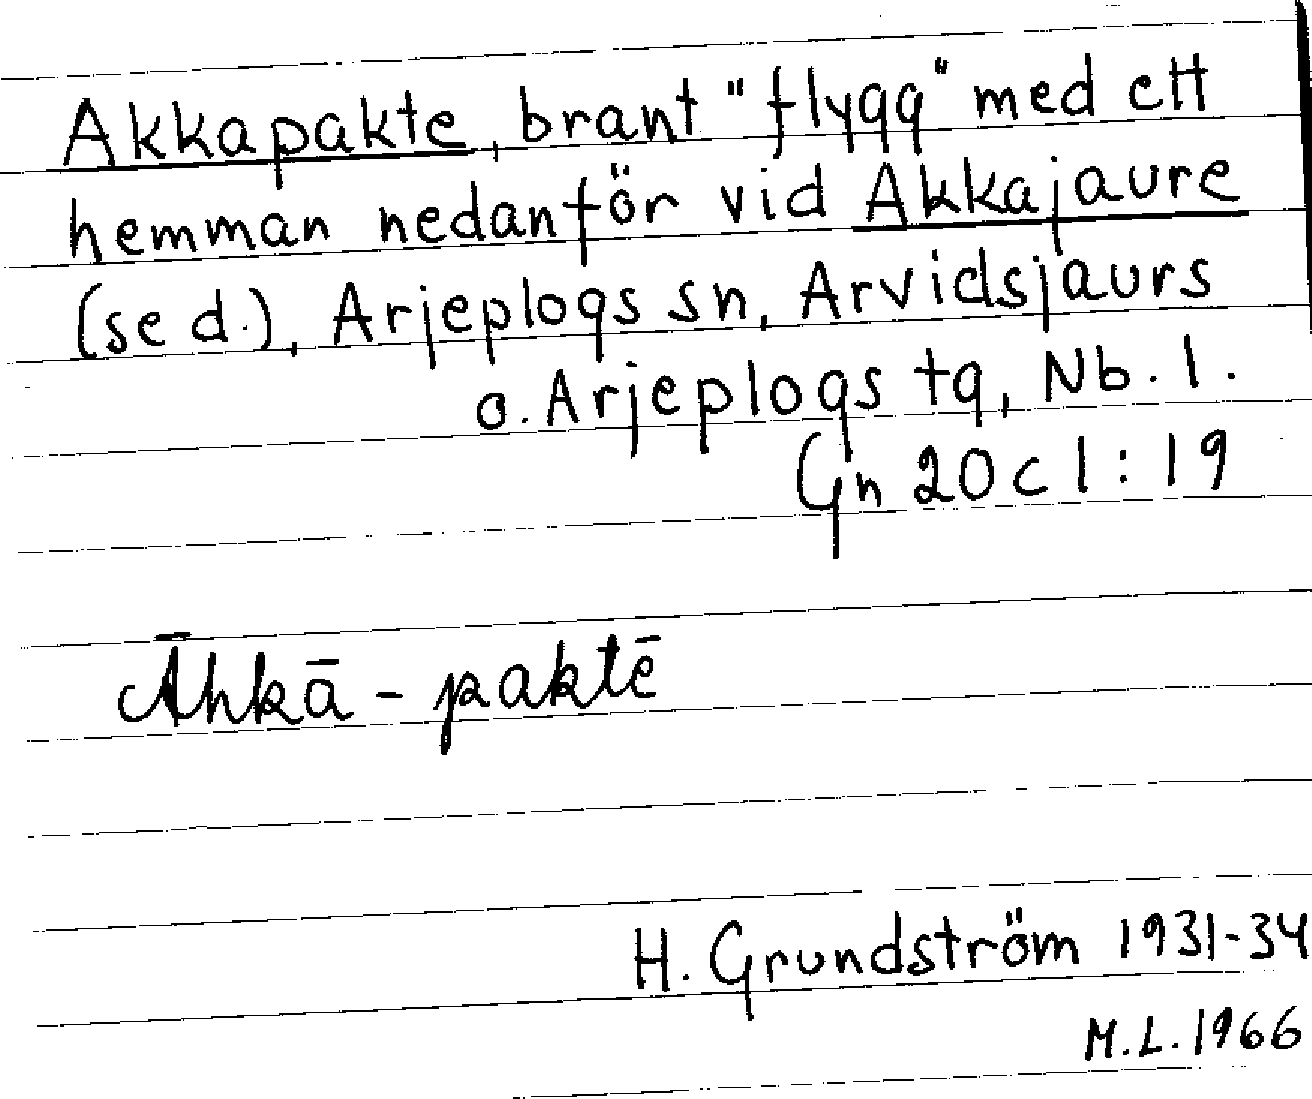 Akkapakte, brant "flygg" med ett
hemman nedanför vid Akkajaure
(se d.), Arjeplogs sn, Arvidsjaurs
o. Arjeplogs tg, Nb. l.
Gn 20 c 1 : 19
Āhkā - paktē
H. Grundström 1931-34
M.L. 1966